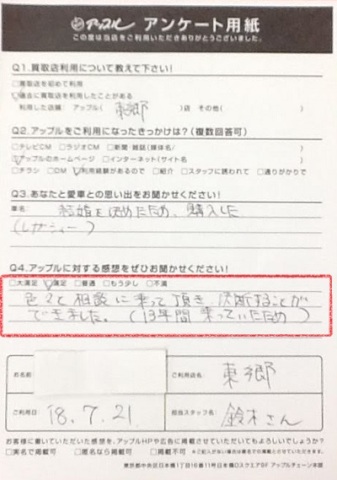 アップル アンケート用紙
この度は当店をご利用いただきありがとうございました。
Q1.買取店利用について教えて下さい!
□買取店を初めて利用
☑過去に買取店を利用したことがある
利用した店舗: アップル( 東郷 )店 その他( )
Q2.アップルをご利用になったきっかけは?(複数回答可)
□テレビCM □ラジオCM □新聞・雑誌(媒体名) )
☑アップルのホームページ □インターネット(サイト名) )
□チラシ □DM ☑利用経験があるので □紹介 □スタッフに誘われて □通りがかりで
Q3.あなたと愛車との思い出をお聞かせください!
車名: 結婚を決めたため、購入した
(レガシィー)
Q4.アップルに対する感想をぜひお聞かせください!
□大満足 ☑満足 □普通 □もう少し □不満
色々と相談に乗って頂き、決断することが
できました。(13年間乗っていたため)
お名前
ご利用店名: 東郷
ご利用日 18.7.21
担当スタッフ名: 鈴木さん
お客様に書いていただいた感想を、アップルHPや広告に掲載させていただいてもよろしいでしょうか?
□実名で掲載可 □匿名なら掲載可 □掲載不可
アップルチェーン本部